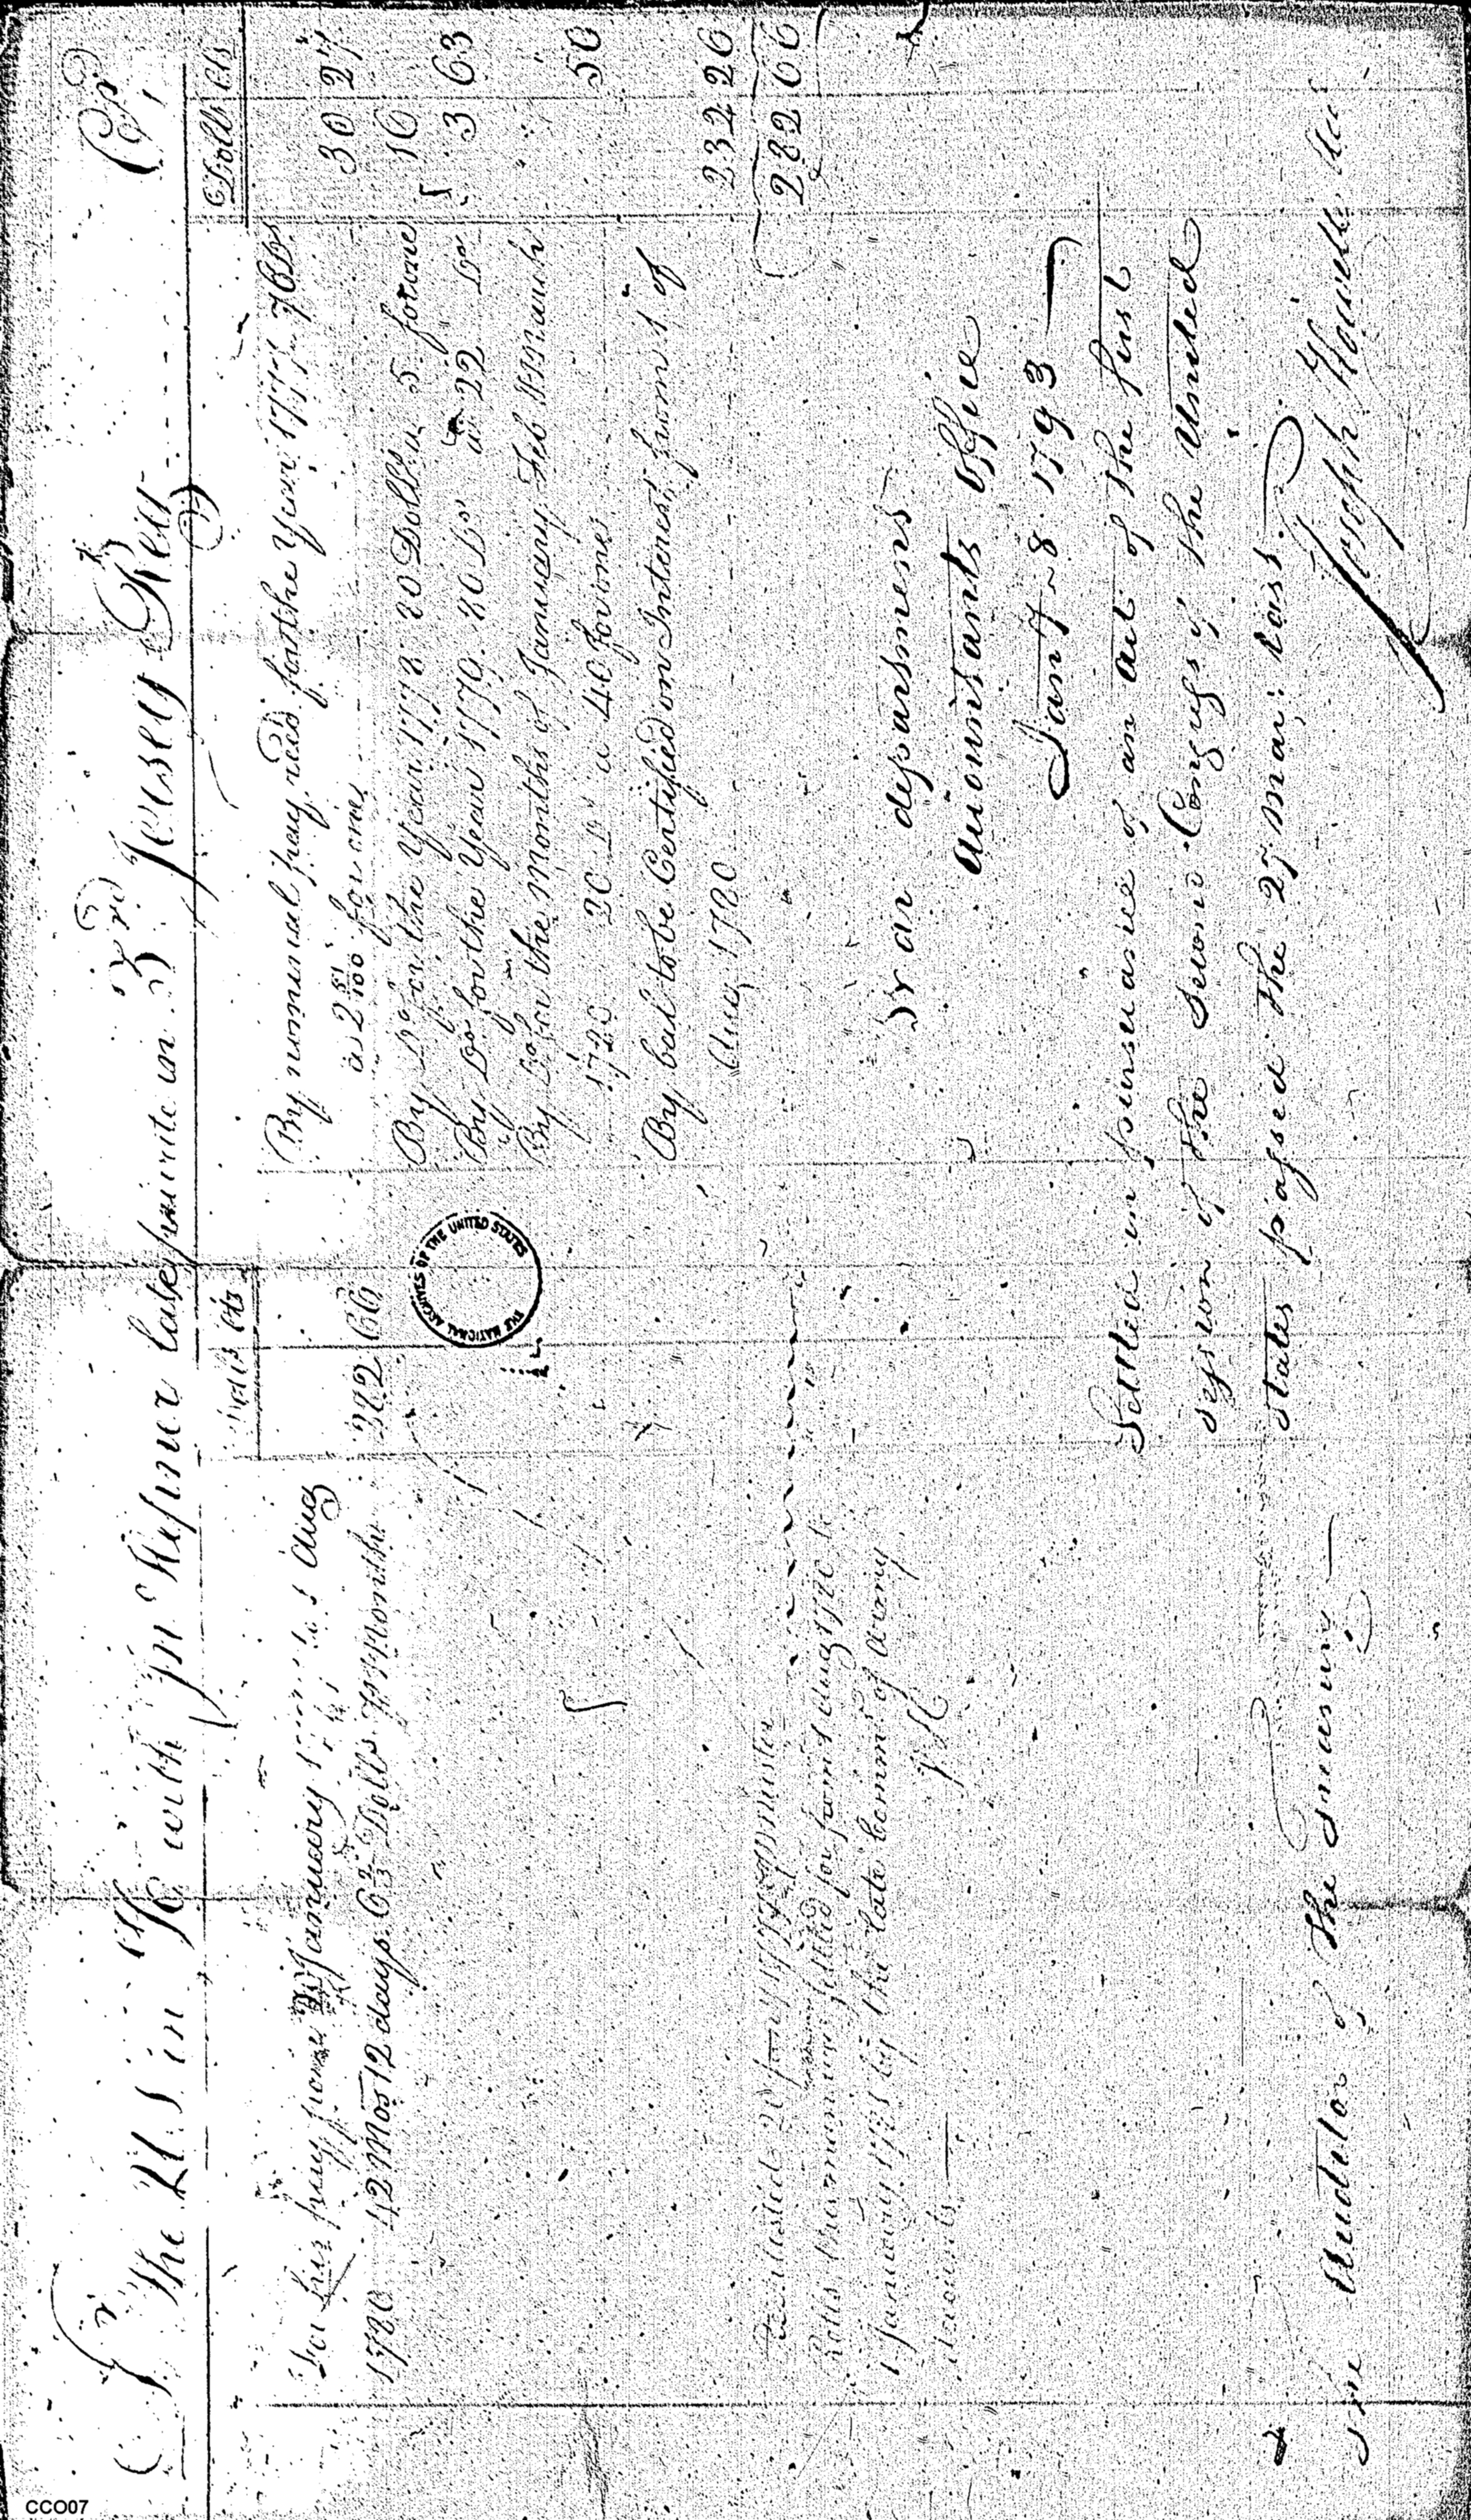 Dr The U S in A/c with Jn Refiner late private in 3rd Jersey Regt Cr
Dolls Cts
For his pay from January to 1 Aug
1780 42 Mos 12 days 6 2/3 Dolls pr Month 282 66
Rolls, the remainder settled for from 1 Aug 1780 to
1 January 1781 by the late Commrs of Army
Accounts
Dolls Cts
By nominal pay recd for the Year 1777 76 Ds
a 2 51/100 for one 30 27
By Do for the Year 1778 80 Dolls a 5 for one 16
By Do for the Year 1779 80 Do a 22 Do 3 63
By Do for the Months of January Feb & March
1780 20 Do a 40 for one 50
By bal to be Certified on Interest from 1 of
Aug 1780 232 26
282 66
War department
Accountants Office
Jany 8 1793
Settled in pursuance of an act of the first
session of the second Congress of the United
States passed the 27 Mar: last
Joseph Howell
The Auditor of the Treasury
THE NATIONAL ARCHIVES OF THE UNITED STATES
CCO07